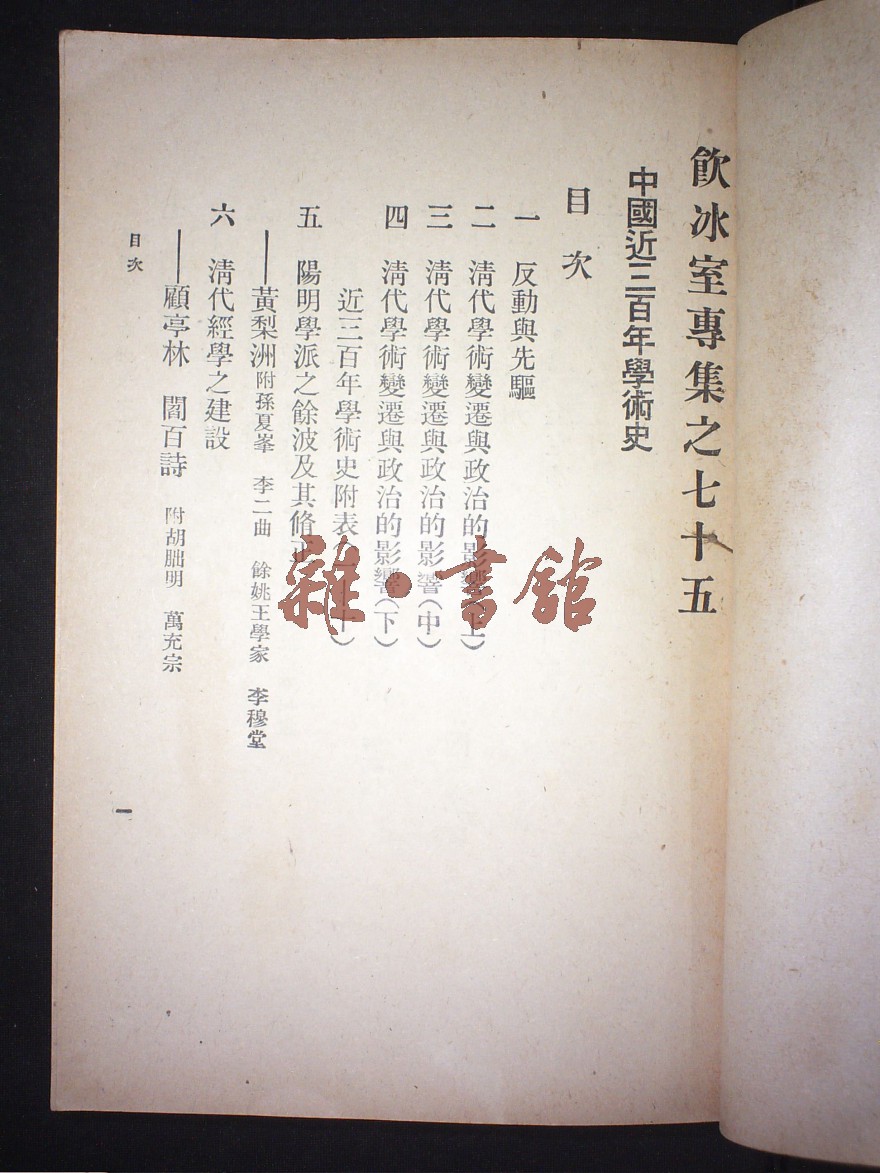 飲冰室專集之七十五
中國近三百年學術史
目次
一 反動與先驅
二 清代學術變遷與政治的影響(上)
三 清代學術變遷與政治的影響(中)
四 清代學術變遷與政治的影響(下)
近三百年學術史附表
五 陽明學派之餘波及其修正
——黃梨洲 附孫夏峯 李二曲 餘姚王學家 李穆堂
六 清代經學之建設
——顧亭林 閻百詩 附胡朏明 萬充宗
目次
一
雜·書館